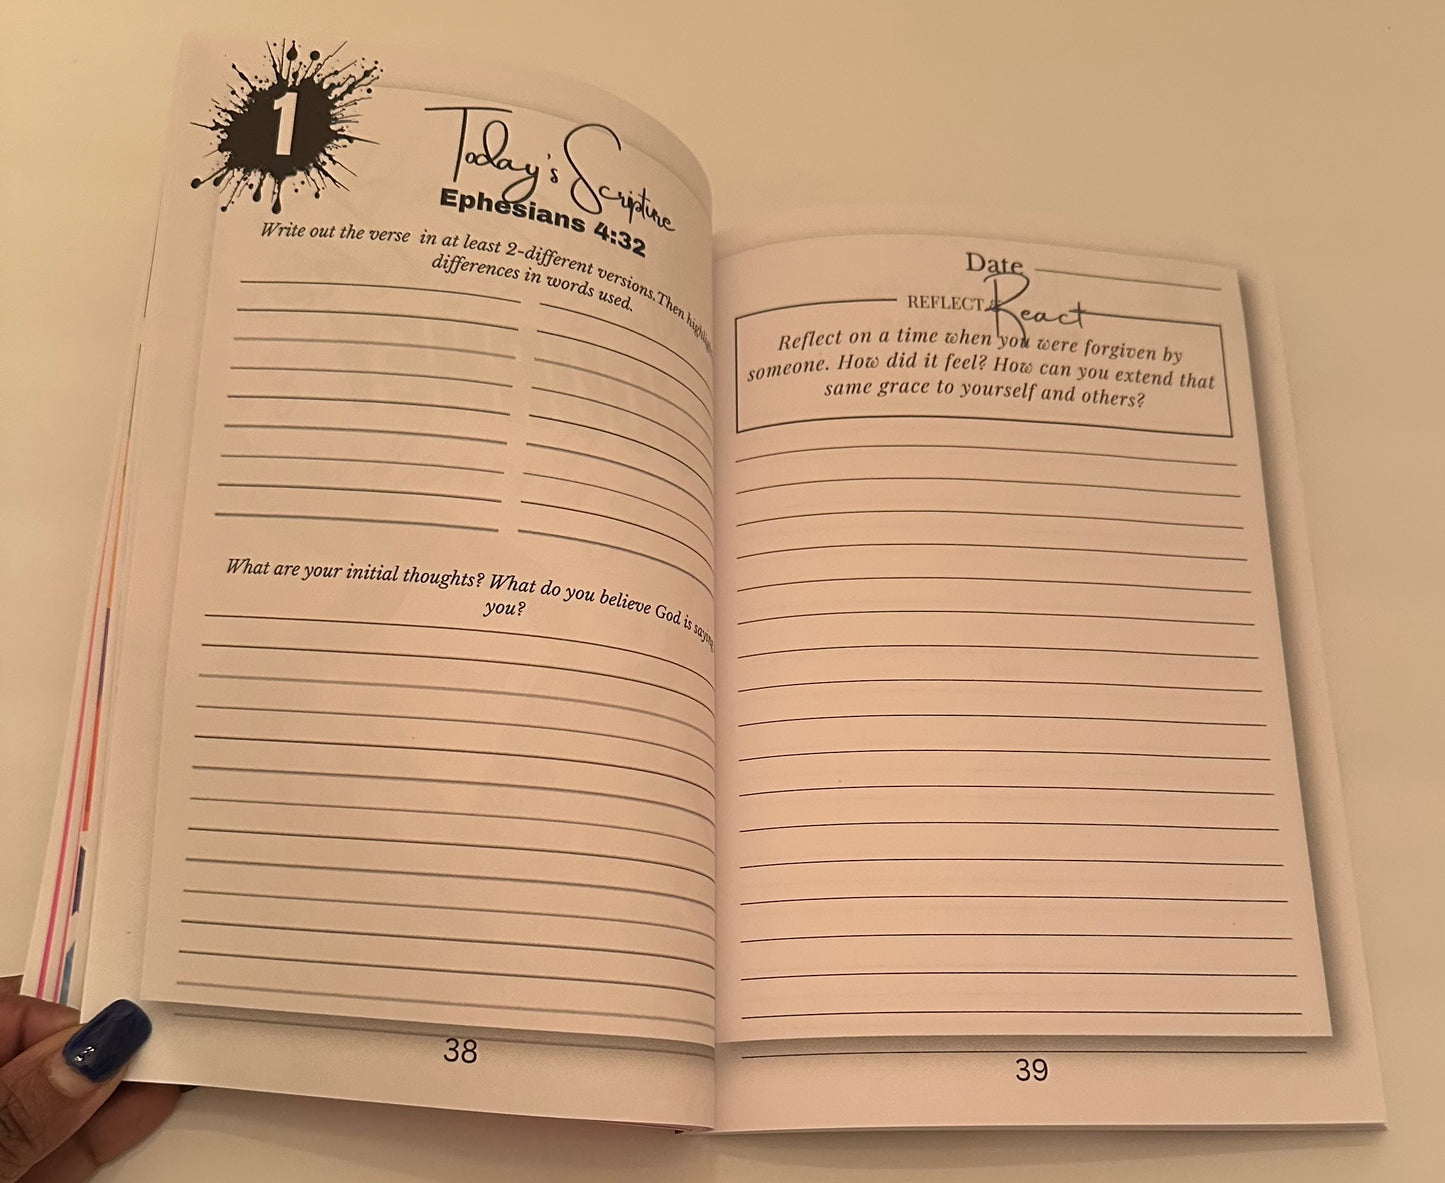 1
Today's Scripture
Ephesians 4:32
Write out the verse in at least 2-different versions. Then
differences in words used.
What are your initial thoughts? What do you believe God is
you?
38
Date
REFLECT & React
Reflect on a time when you were forgiven by
someone. How did it feel? How can you extend that
same grace to yourself and others?
39